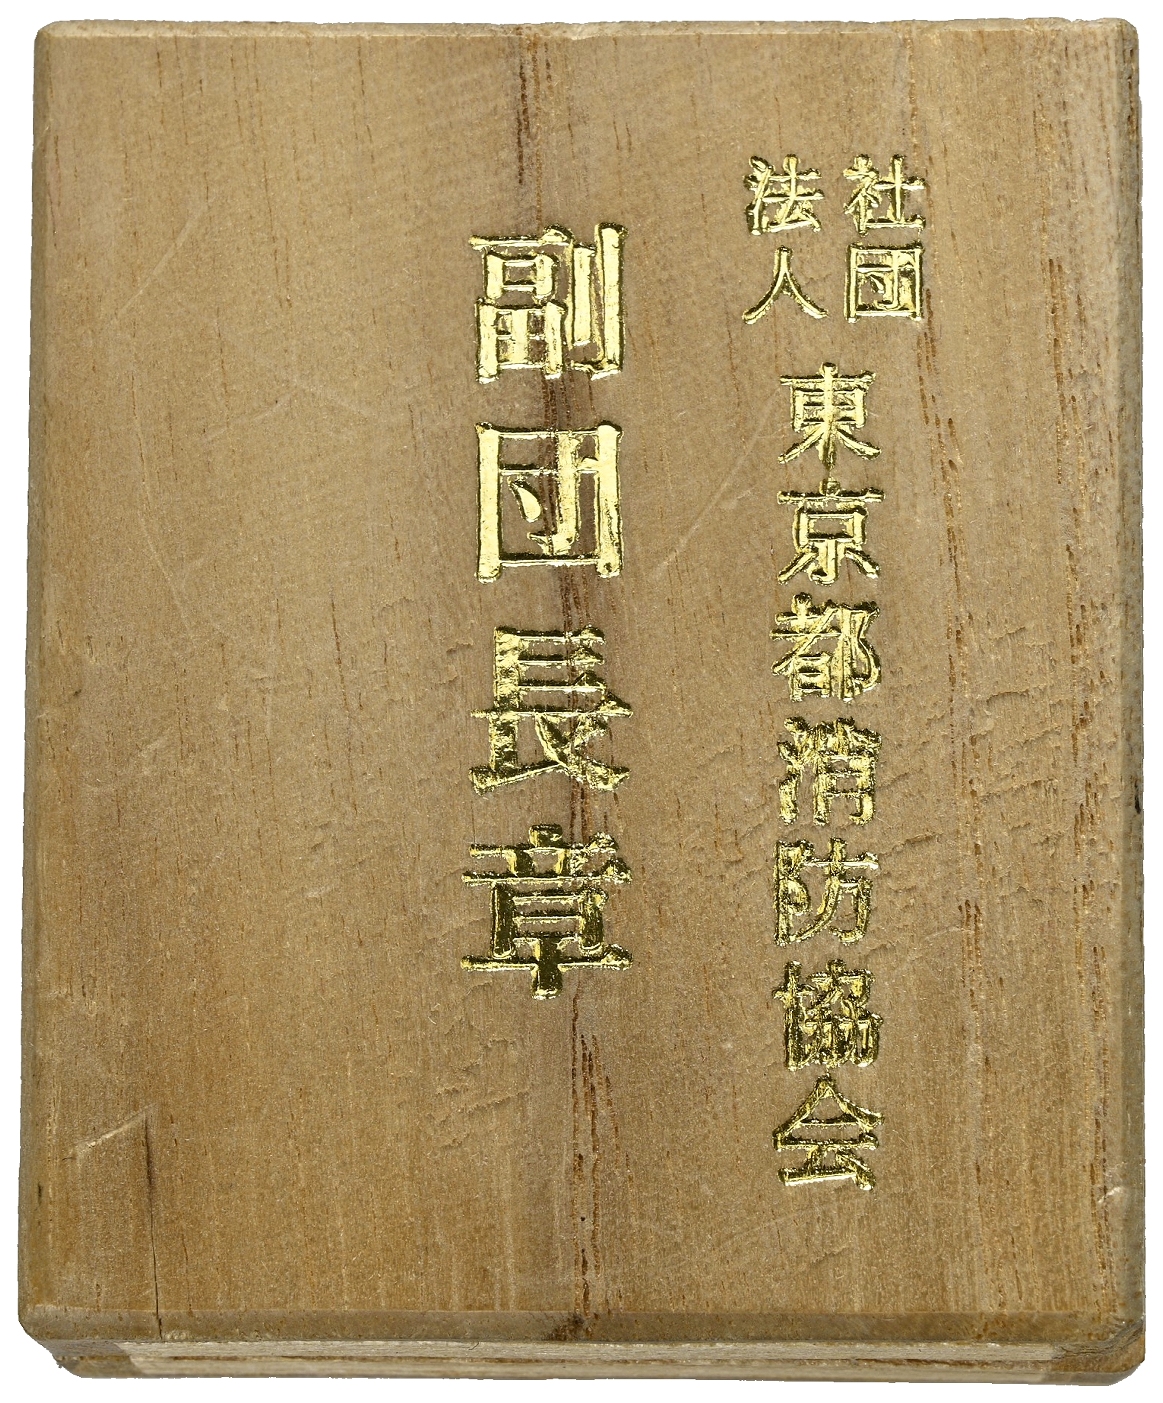 社団法人 東京都消防協会
副団長章